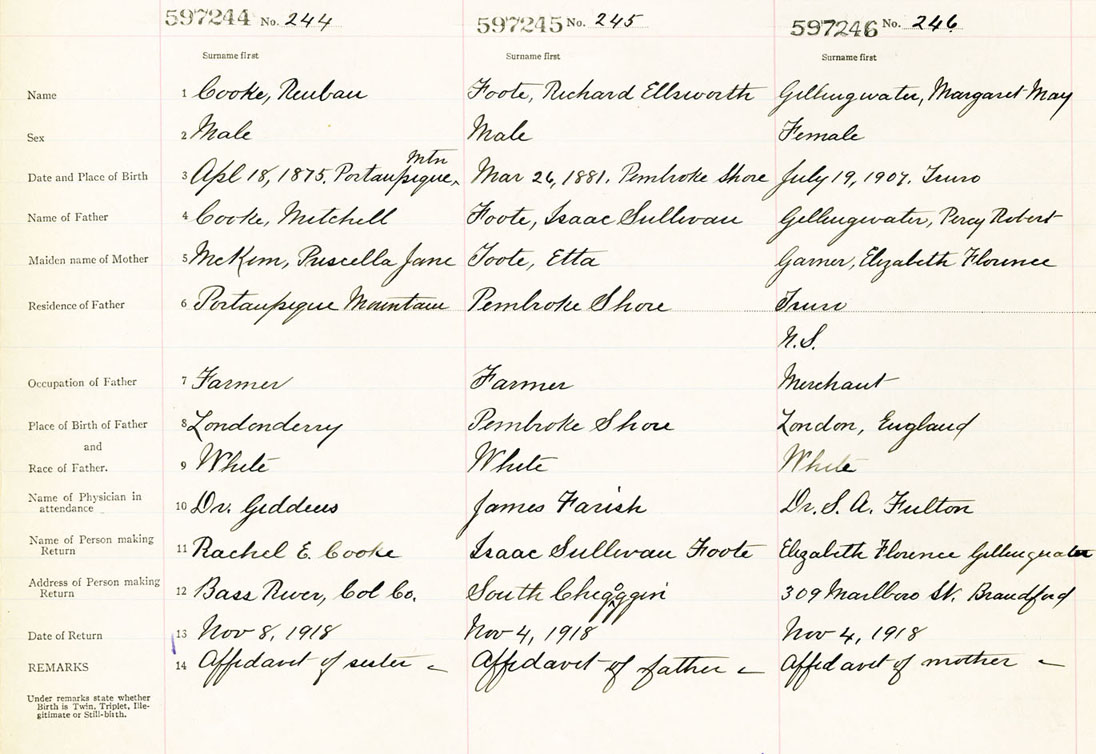 597244 No. 244 597245 No. 245 597246 No. 246
Surname first Surname first Surname first
Name 1 Cooke, Reuban Foote, Richard Ellsworth Gillingwater, Margaret May
Sex 2 Male Male Female
Mtn
Date and Place of Birth 3 Apl 18, 1875. Portaupique Mar 26, 1881. Pembroke Shore July 19, 1907. Truro
Name of Father 4 Cooke, Mitchell Foote, Isaac Sullivan Gillingwater, Percy Robert
Maiden name of Mother 5 McKim, Priscella Jane Foote, Etta Garner, Elizabeth Florence
Residence of Father 6 Portaupique Mountain Pembroke Shore Truro
N.S.
Occupation of Father 7 Farmer Farmer Merchant
Place of Birth of Father 8 Londonderry Pembroke Shore London, England
and
Race of Father. 9 White White White
Name of Physician in
attendance 10 Dr. Giddens James Farish Dr. S. A. Fulton
Name of Person making
Return 11 Rachel E. Cooke Isaac Sullivan Foote Elizabeth Florence Gillingwater
Address of Person making
Return 12 Bass River, Col Co. South Cheggoggin 309 Marlboro St. Brandford
Date of Return 13 Nov 8, 1918 Nov 4, 1918 Nov 4, 1918
REMARKS 14 Affidavit of sister - Affidavit of father - Affidavit of mother -
Under remarks state whether
Birth is Twin, Triplet, Ille-
gitimate or Still-birth.